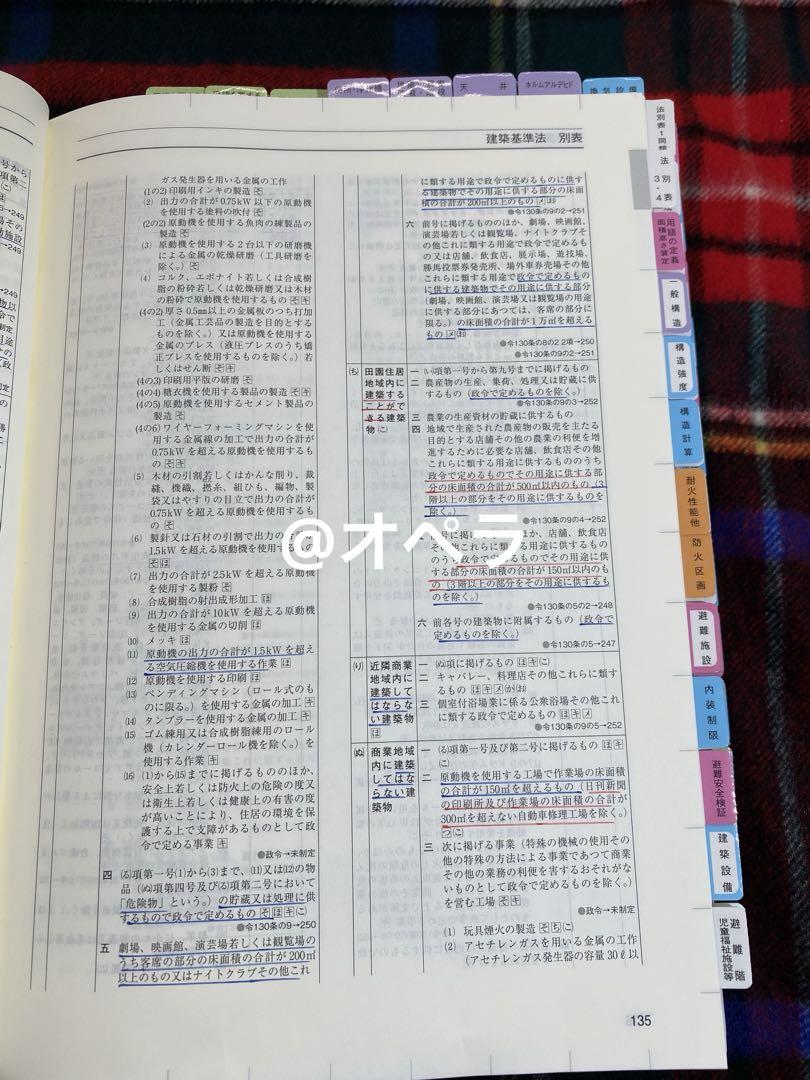 天井
ホルムアルデヒド
換気設備
建築基準法 別表
ガス発生器を用いる金属の工作
(1の2) 印刷用インキの製造 そ
(2) 出力の合計が0.75kW以下の原動機
を使用する塗料の吹付 そ
(2の2) 原動機を使用する魚肉の練製品の
製造 そ
(3) 原動機を使用する2台以下の研磨機
による金属の乾燥研磨(工具研磨を
除く。) そ
(4) コルク、エボナイト若しくは合成樹
脂の粉砕若しくは乾燥研磨又は木材
の粉砕で原動機を使用するもの そキ
(4の2) 厚さ0.5mm以上の金属板のつち打加
工(金属工芸品の製造を目的とする
ものを除く。)又は原動機を使用する
金属のプレス(液圧プレスのうち矯
正プレスを使用するものを除く。)若
しくはせん断 そキ
(4の3) 印刷用平版の研磨 そ
(4の4) 糖衣機を使用する製品の製造 そ
(4の5) 原動機を使用するセメント製品の
製造 そ
(4の6) ワイヤーフォーミングマシンを使
用する金属線の加工で出力の合計が
0.75kWを超える原動機を使用するも
の そキ
(5) 木材の引割若しくはかんな削り、裁
縫、機織、撚糸、組ひも、編物、製
袋又はやすりの目立で出力の合計が
0.75kWを超える原動機を使用するも
の そ
(6) 製針又は石材の引割で出力の
1.5kWを超える原動機を使用するもの
そほ
(7) 出力の合計が2.5kWを超える原動機
を使用する製粉 そ
(8) 合成樹脂の射出成形加工 ほ
(9) 出力の合計が10kWを超える原動機
を使用する金属の切削 ほ
(10) メッキ ほ
(11) 原動機の出力の合計が1.5kWを超え
る空気圧縮機を使用する作業 ほ
(12) 原動機を使用する印刷 ほ
(13) ベンディングマシン(ロール式のも
のに限る。)を使用する金属の加工 キ
(14) タンブラーを使用する金属の加工 キ
(15) ゴム練用又は合成樹脂練用のロール
機(カレンダーロール機を除く。)を
使用する作業 キ
(16) (1)から(15)までに掲げるもののほか、
安全上若しくは防火上の危険の度又
は衛生上若しくは健康上の有害の度
が高いことにより、住居の環境を保
護する上で支障があるものとして政
令で定める事業 キ
●政令→未制定
四 (る)項第一号(1)から(3)まで、(11)又は(12)の物
品((ぬ)項第四号及び(る)項第二号において
「危険物」という。)の貯蔵又は処理に供
するもので政令で定めるもの そほキ(に)
●令130条の9→250
五 劇場、映画館、演芸場若しくは観覧場の
うち客席の部分の床面積の合計が200㎡
以上のもの又はナイトクラブその他これ
に類する用途で政令で定めるものに供す
る建築物でその用途に供する部分の床面
積の合計が200㎡以上のもの メお
●令130条の9の2→251
六 前号に掲げるもののほか、劇場、映画館、
演芸場若しくは観覧場、ナイトクラブそ
の他これに類する用途で政令で定めるも
の又は店舗、飲食店、展示場、遊技場、
勝馬投票券発売所、場外車券売場その他
これらに類する用途で政令で定めるもの
に供する建築物でその用途に供する部分
(劇場、映画館、演芸場又は観覧場の用途
に供する部分にあつては、客席の部分に
限る。)の床面積の合計が1万㎡を超える
もの メお
●令130条の8の2 2項→250
●令130条の9の2→251
(ち) 田園住居
地域内に
建築する
ことがで
きる建築
物(に)
一 (い)項第一号から第九号までに掲げるもの
二 農産物の生産、集荷、処理又は貯蔵に供
するもの(政令で定めるものを除く。)
●令130条の9の3→252
三 農業の生産資材の貯蔵に供するもの
四 地域で生産された農産物の販売を主たる
目的とする店舗その他の農業の利便を増
進するために必要な店舗、飲食店その他
これらに類する用途に供するもののうち
政令で定めるものでその用途に供する部
分の床面積の合計が500㎡以内のもの(3
階以上の部分をその用途に供するものを
除く。)
●令130条の9の4→252
号に掲げ ほか、店舗、飲食店
その他これらに類する用途に供するもの
のうち政令で定めるものでその用途に供
する部分の床面積の合計が150㎡以内のも
の(3階以上の部分をその用途に供するもの
を除く。)
●令130条の5の2→248
六 前各号の建築物に附属するもの(政令で
定めるものを除く。)
●令130条の5→247
(り) 近隣商業
地域内に
建築して
はならな
い建築物
ほ
一 (ぬ)項に掲げるもの ほキ(に)
二 キャバレー、料理店その他これらに類す
るもの ほキメ(か)お
三 個室付浴場業に係る公衆浴場その他これ
に類する政令で定めるもの ほキメ
●令130条の9の5→252
(ぬ) 商業地域
内に建築
してはな
らない建
築物
一 (る)項第一号及び第二号に掲げるもの ほキ
(に)
二 原動機を使用する工場で作業場の床面積
の合計が150㎡を超えるもの(日刊新聞
の印刷所及び作業場の床面積の合計が
300㎡を超えない自動車修理工場を除く。)
つ(に)
三 次に掲げる事業(特殊の機械の使用その
他の特殊の方法による事業であつて商業
その他の業務の利便を害するおそれがな
いものとして政令で定めるものを除く。)
を営む工場 そキ
●政令→未制定
(1) 玩具煙火の製造 そち(に)
(2) アセチレンガスを用いる金属の工作
(アセチレンガス発生器の容量30ℓ以
135
法別表1問題
法別表3・4
用語の定義
面積高さ算定
一般構造
構造強度
構造計算
耐火性能他
防火区画
避難施設
内装制限
避難安全検証
建築設備
避難階
児童福祉施設等
@オペラ